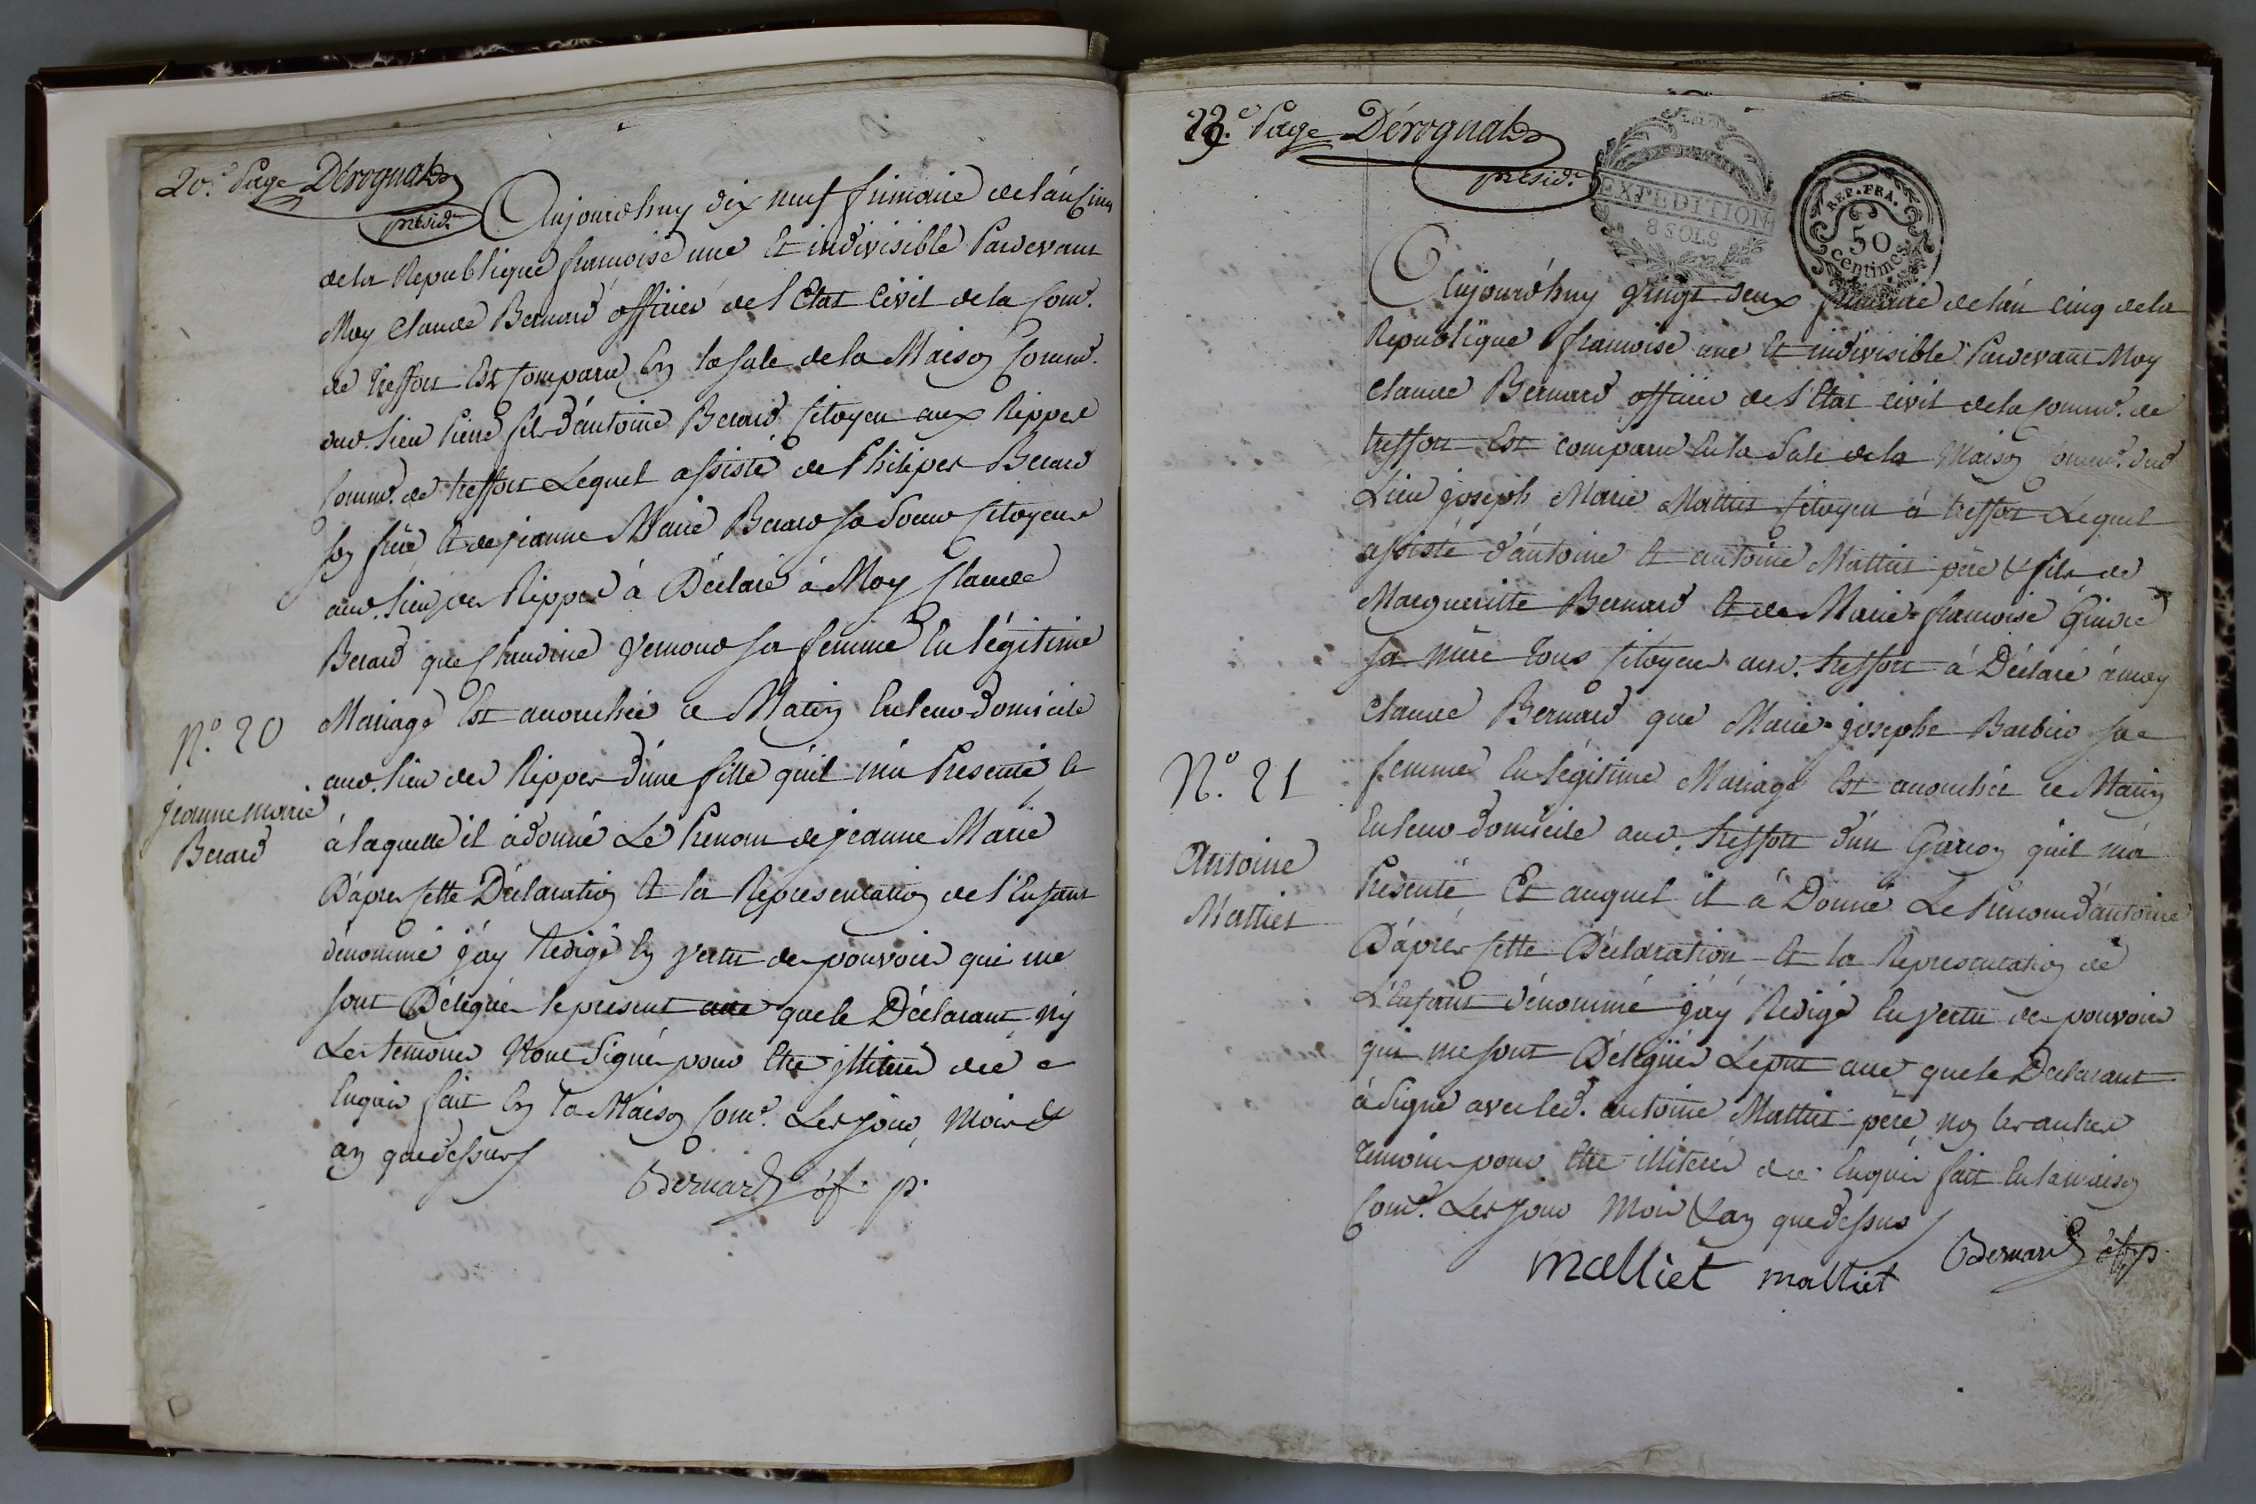 20.e Page Dérognat
présidt.
Aujourdhuy dix neuf frimaire de l'án Cinq
de la Republique francoise une Et indivisible Pardevant
Moy Claude Bernard officier de l'Etat Civil de la Comé.
de treffort Est Comparu En la sale de la Maison Comme.
dud. lieu Pierre fils d'ántoine Berard Citoyen aux Rippes
Comme. de treffort Lequel assisté de Philipes Berard
son frère Et de jeanne Marie Berard sa Soeur Citoyens
aud. lieu des Rippes à Déclaré à Moy Claude
Berard que Claudine Vernoud sa femme En légitime
Mariage Est accouchée ce Matin En leur domicile
aud. lieu des Rippes d'une fille qu'il m'a Presenté, Et
à laquelle il à donné Le Prenom de jeanne Marie
D'après Cette Déclaration Et la Représentation de l'Enfant
dénommé j'áy Redigé En vertu des pouvoirs qui me
sont Délégués le présent acte que le Déclarant n'y
Les temoins N'ont Signés pour Etre illiterés de ce
Enquis fait En la Maison Come. Les jour, Mois et
an que dessus
Bernard of. p.
N.o 20
jeanne marie
Berard
23.e Page Dérognat
présidt.
EXPEDITION
8 SOLS
REP. FRA.
50
centimes
Aujourd'huy vingt deux frimaire de l'án cinq de la
Republique francoise une Et indivisible Pardevant Moy
Claude Bernard officier de l'Etat civil de la Comme. de
treffort Est comparu En la Sale de la Maison Comme. dud
Lieu joseph Marie Mattiet Citoyen à treffort Lequel
assisté d'ántoine Et antoine Mattiet père & fils de
Margueritte Bernard Et de Marie-francoise
sa mère tous Citoyens aud. treffort à Déclaré à moy
Claude Bernard que Marie-josephe Barbier sa
femme En légitime Mariage Est accouchée ce Matin
En leur domicile aud. treffort d'ún Garcon qu'il m'á
Presenté Et auquel il à Donné Le Prenom d'ántoine
D'après Cette Déclaration Et la Représentation de
L'Enfant dénommé j'áy Redigé En vertu des pouvoirs
qui me sont Délégués Le pnt acte que le Declarant
à Signé avec led. antoine Mattiet père, non les autres
temoins pour Etre illiterés de ce Enquis fait En la maison
Come. Les jour Mois & an que dessus
malliet mattiet Bernard of. p.
N.o 21
Antoine
Mattiet